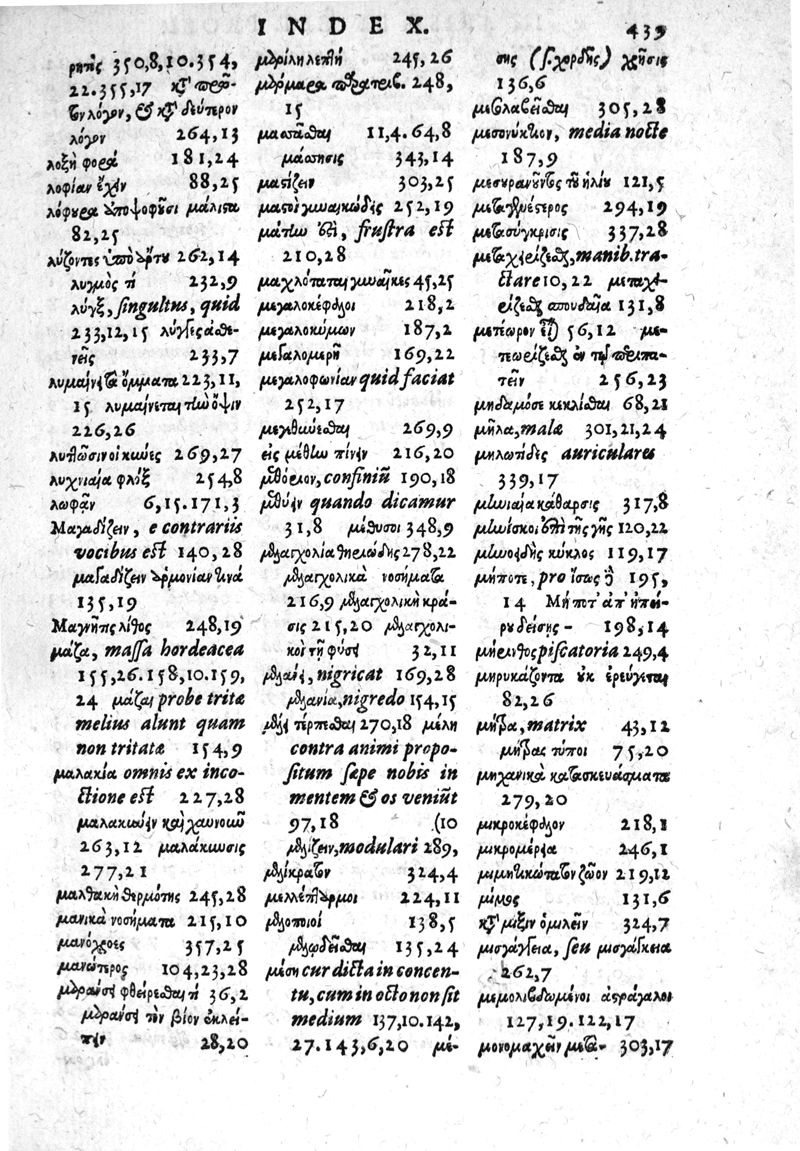 INDEX.
439
350,8,10.354,
22.355,17
λόγον, & δεύτερον
λόγον 264,13
λοξὴ φορά 181,24
λοφίαν ἔχειν 88,25
λόφουρα ὑποψοφοῦσι μάλιστα
82,25
λύζοντες 262,14
λυγμὸς τί 232,9
λύγξ, singultus, quid
233,12,15
νεῖς 233,7
λυμαίνεται ὄμματα 223,11,
15 λυμαίνεται τὴν ὄψιν
226,26
λυττῶσιν οἱ κύνες 269,27
λυχνιαία φλόξ 254,8
λωφᾶν 6,15.171,3
Μαγαδίζειν, e contrariis
vocibus est 140,28
μαγαδίζειν ἁρμονίαν τινά
135,19
Μαγνῆτις λίθος 248,19
μάζα, massa hordeacea
155,26.158,10.159,
24 μάζαι probe tritæ
melius alunt quam
non tritatæ 154,9
μαλακία omnis ex inco-
ctione est 227,28
μαλακιᾷν καὶ χαυνοῦν
263,12 μαλάκωσις
277,21
μαλθακὴ θερμότης 245,28
μανικὰ νοσήματα 215,10
357,25
μανώτερος 104,23,28
μαραίνει φθείρεσθαι τί 36,2
μαραίνει τὸν βίον ἐκλεί-
πειν 28,20
μαρίλη λεπτή 245,26
248,
15
μασᾶσθαι 11,4.64,8
μάσησις 343,14
μαστίζειν 303,25
μαστοὶ γυναικώδεις 252,19
μάτην ἐστί, frustra est
210,28
μαχλόταται γυναῖκες 45,25
μεγαλοκέφαλοι 218,2
μεγαλοκύμων 187,2
μεγαλομερῆ 169,22
μεγαλοφωνίαν quid faciat
252,17
μεγεθύνεσθαι 269,9
εἰς μέθην πίνειν 216,20
μεθόριον, confiniũ 190,18
μεθύειν quando dicamur
31,8 μέθυσοι 348,9
μελαγχολία 278,22
μελαγχολικὰ νοσήματα
216,9 μελαγχολικὴ κρᾶ-
σις 215,20 μελαγχολι-
κοὶ τῇ φύσει 32,11
μελαίνει, nigricat 169,28
μελανία, nigredo 154,15
μέλει τέρπεσθαι 270,18 μέλη
contra animi propo-
situm sæpe nobis in
mentem & os veniũt
97,18 (10
μελίζειν, modulari 289,
μελίκρατον 324,4
μελλέπταρμοι 224,11
μελοποιοί 138,5
μελῳδεῖσθαι 135,24
μέση cur dicta in concen-
tu, cum in octo non sit
medium 137,10.142,
27.143,6,20 μέ-
σης (s. χορδῆς) χρῆσις
136,6
μεσολαβεῖσθαι 305,28
μεσονύκτιον, media nocte
187,9
μεσουρανοῦντος τοῦ ἡλίου 121,5
294,19
μετασύγκρισις 337,28
μεταχειρίζεσθαι, manib. tra-
ctare 10,22 μεταχει-
ρίζεσθαι σπουδαῖα 131,8
μετέωρον 56,12 με-
τεωρίζεσθαι ἐν τῷ περιπα-
τεῖν 256,23
μηδαμόσε κεκλίσθαι 68,21
μῆλα, malæ 301,21,24
μηλωτίδες auriculares
339,17
μηνιαία κάθαρσις 317,8
μηνίσκοι ἐπὶ τῆς γῆς 120,22
μηνοειδὴς κύκλος 119,17
μήποτε, pro ἴσως 195,
14 Μήποτ' ἀπ' ἠπεί-
ρου δείσης - 198,14
μήρινθος piscatoria 249,4
μηρυκάζοντα οὐκ ἐρεύγεται
82,26
μήτρα, matrix 43,12
μήτρας τύποι 75,20
μηχανικὰ κατασκευάσματα
279,20
μικροκέφαλον 218,1
μικρομέρεια 246,1
μιμητικώτατον ζῶον 219,12
μίμος 131,6
μίξιν ὁμιλεῖν 324,7
μισγάγγεια, seu μισγάγκεια
262,7
μεμολιβδωμένοι ἀστράγαλοι
127,19.122,17
μονομαχεῖν μετα- 303,17